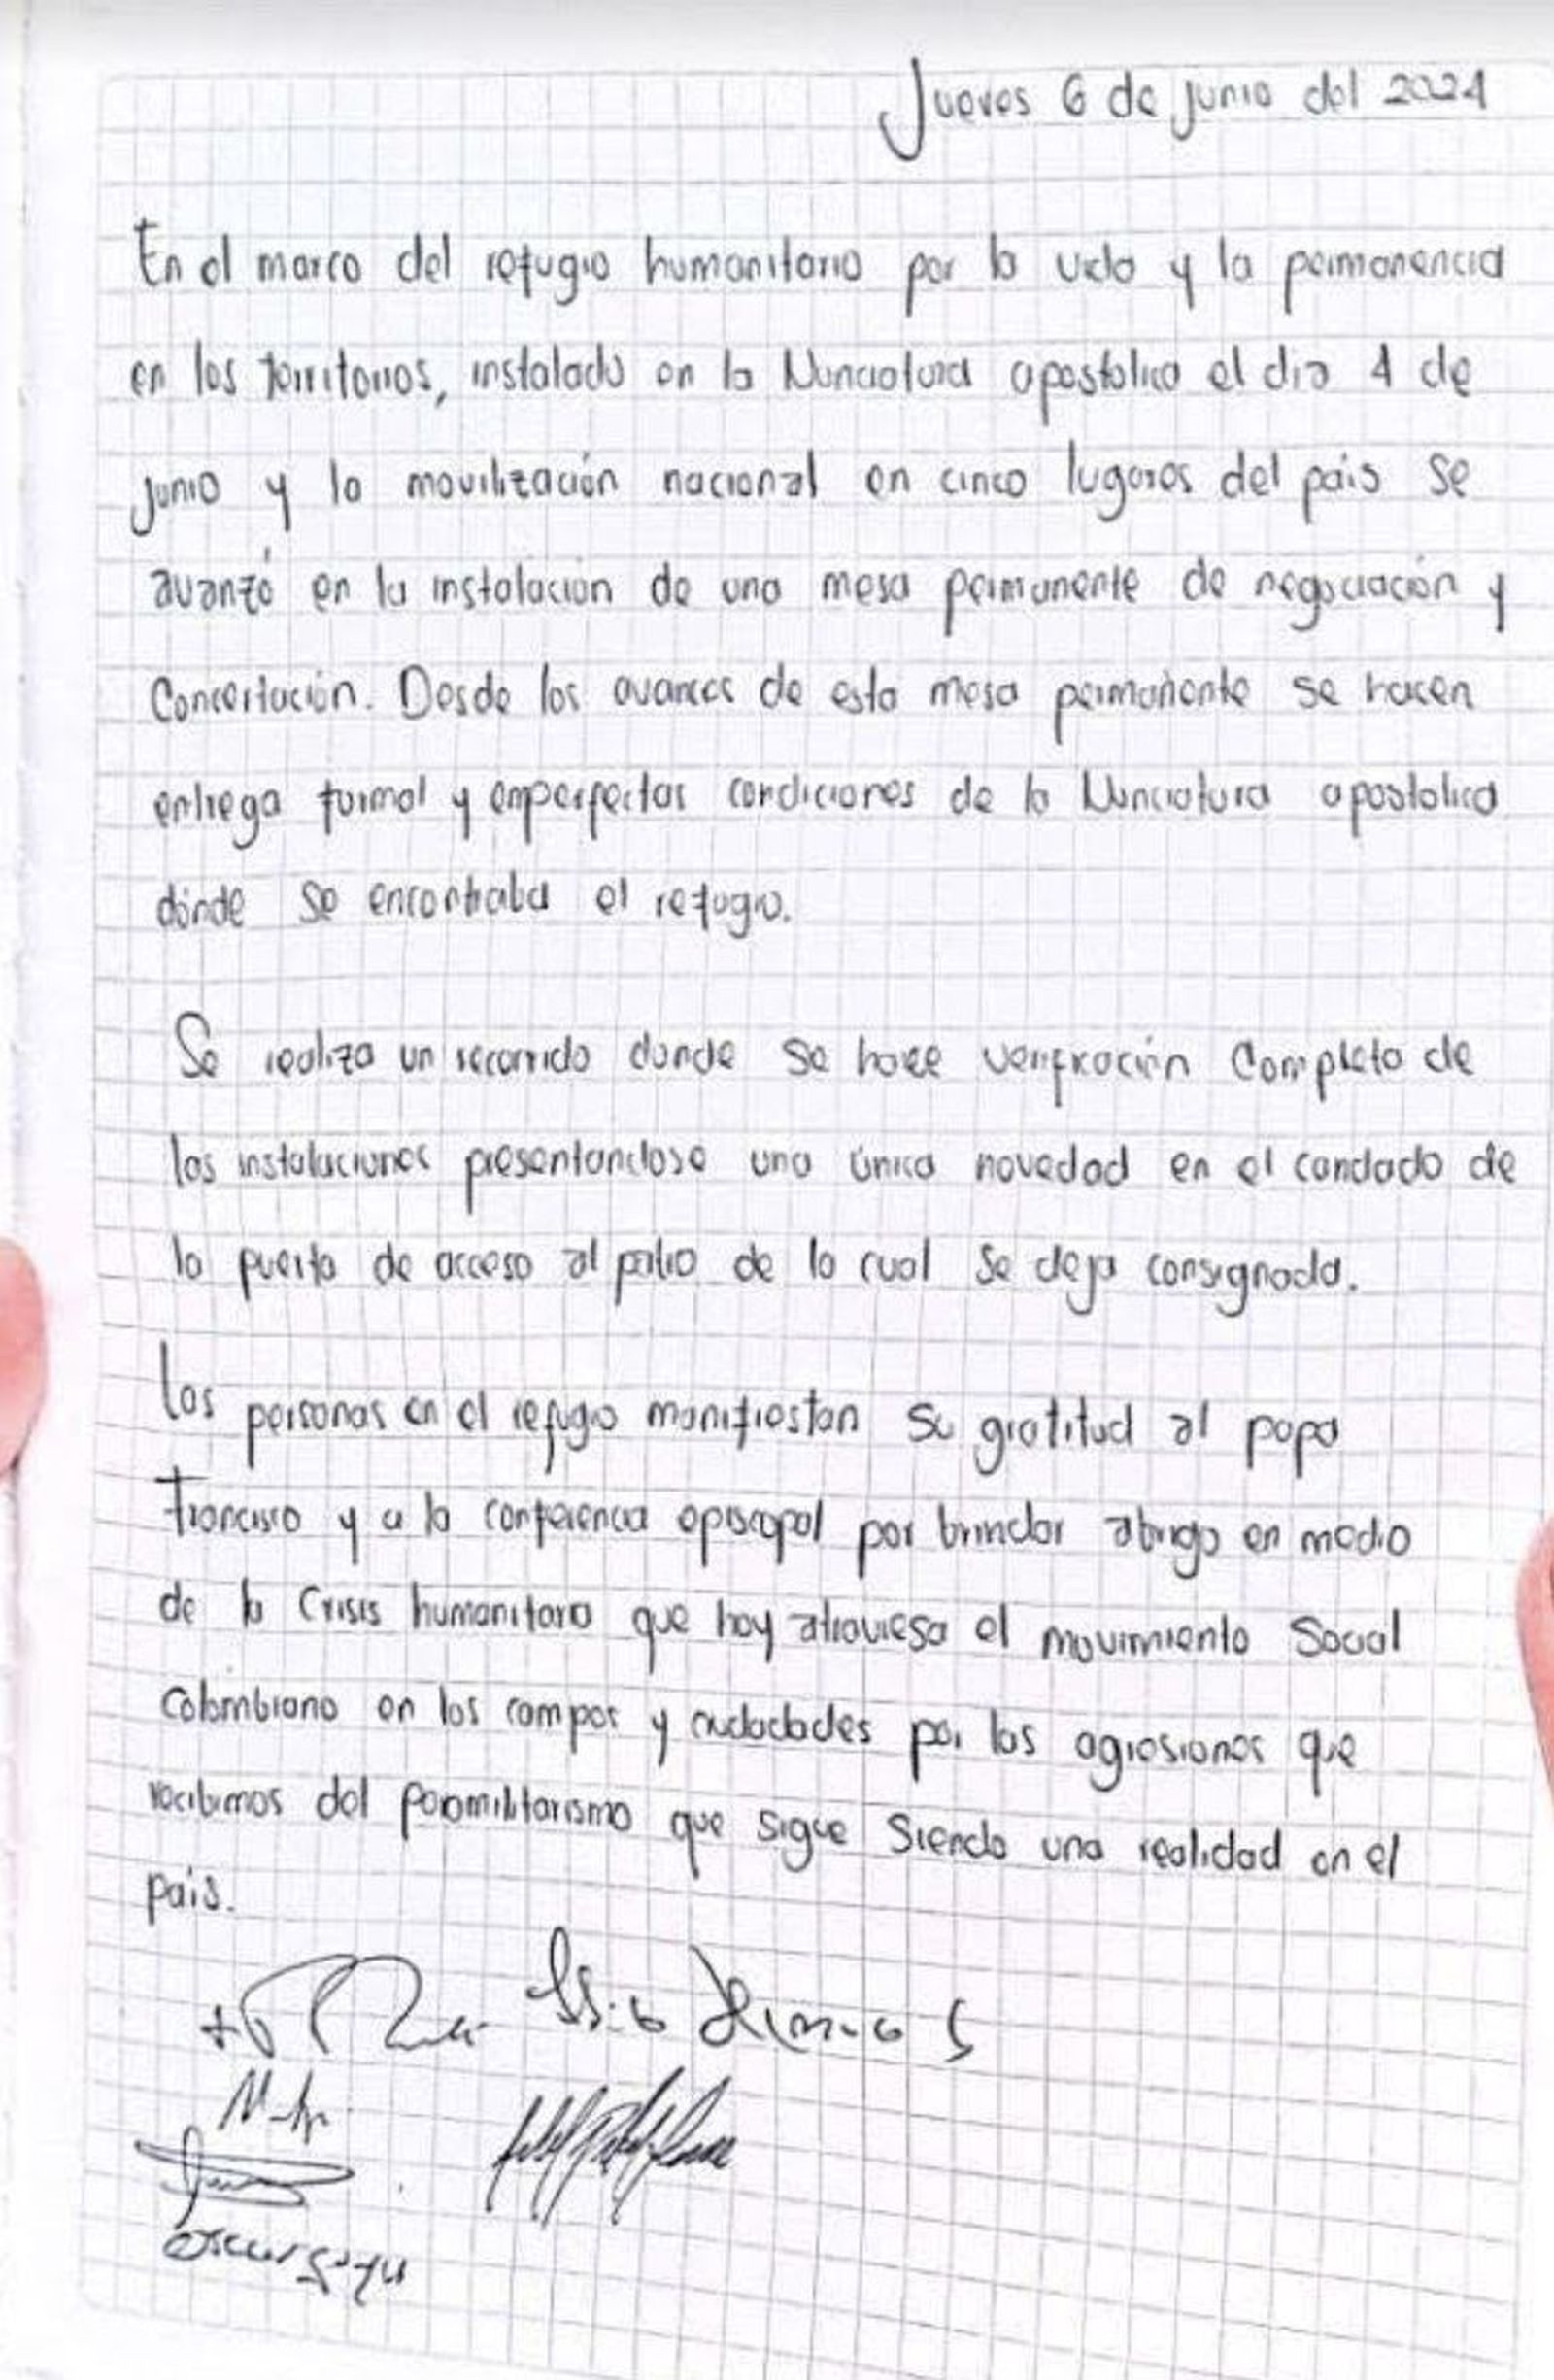 Jueves 6 de junio del 2024
En el marco del refugio humanitario por la vida y la permanencia
en los territorios, instalado en la Nunciatura apostolica el dia 4 de
junio y la movilización nacional en cinco lugares del pais se
avanzó en la instalación de una mesa permanente de negociación y
Concertación. Desde los avances de esta mesa permanente se hacen
entrega formal y emperfectas condiciones de la Nunciatura apostolica
dónde se encontraba el refugio.
Se realiza un recorrido donde se hace verificación Completa de
las instalaciones presentandose una única novedad en el candado de
la puerta de acceso al patio de la cual se deja consignada.
Las personas en el refugio manifiestan su gratitud al papa
Francisco y a la conferencia episcopal por brindar abrigo en medio
de la Crisis humanitara que hoy atraviesa el movimiento Social
Colombiano en los campos y ciudadades por las agresiones que
recibimos del paramilitarismo que sigue Siendo una realidad en el
pais.